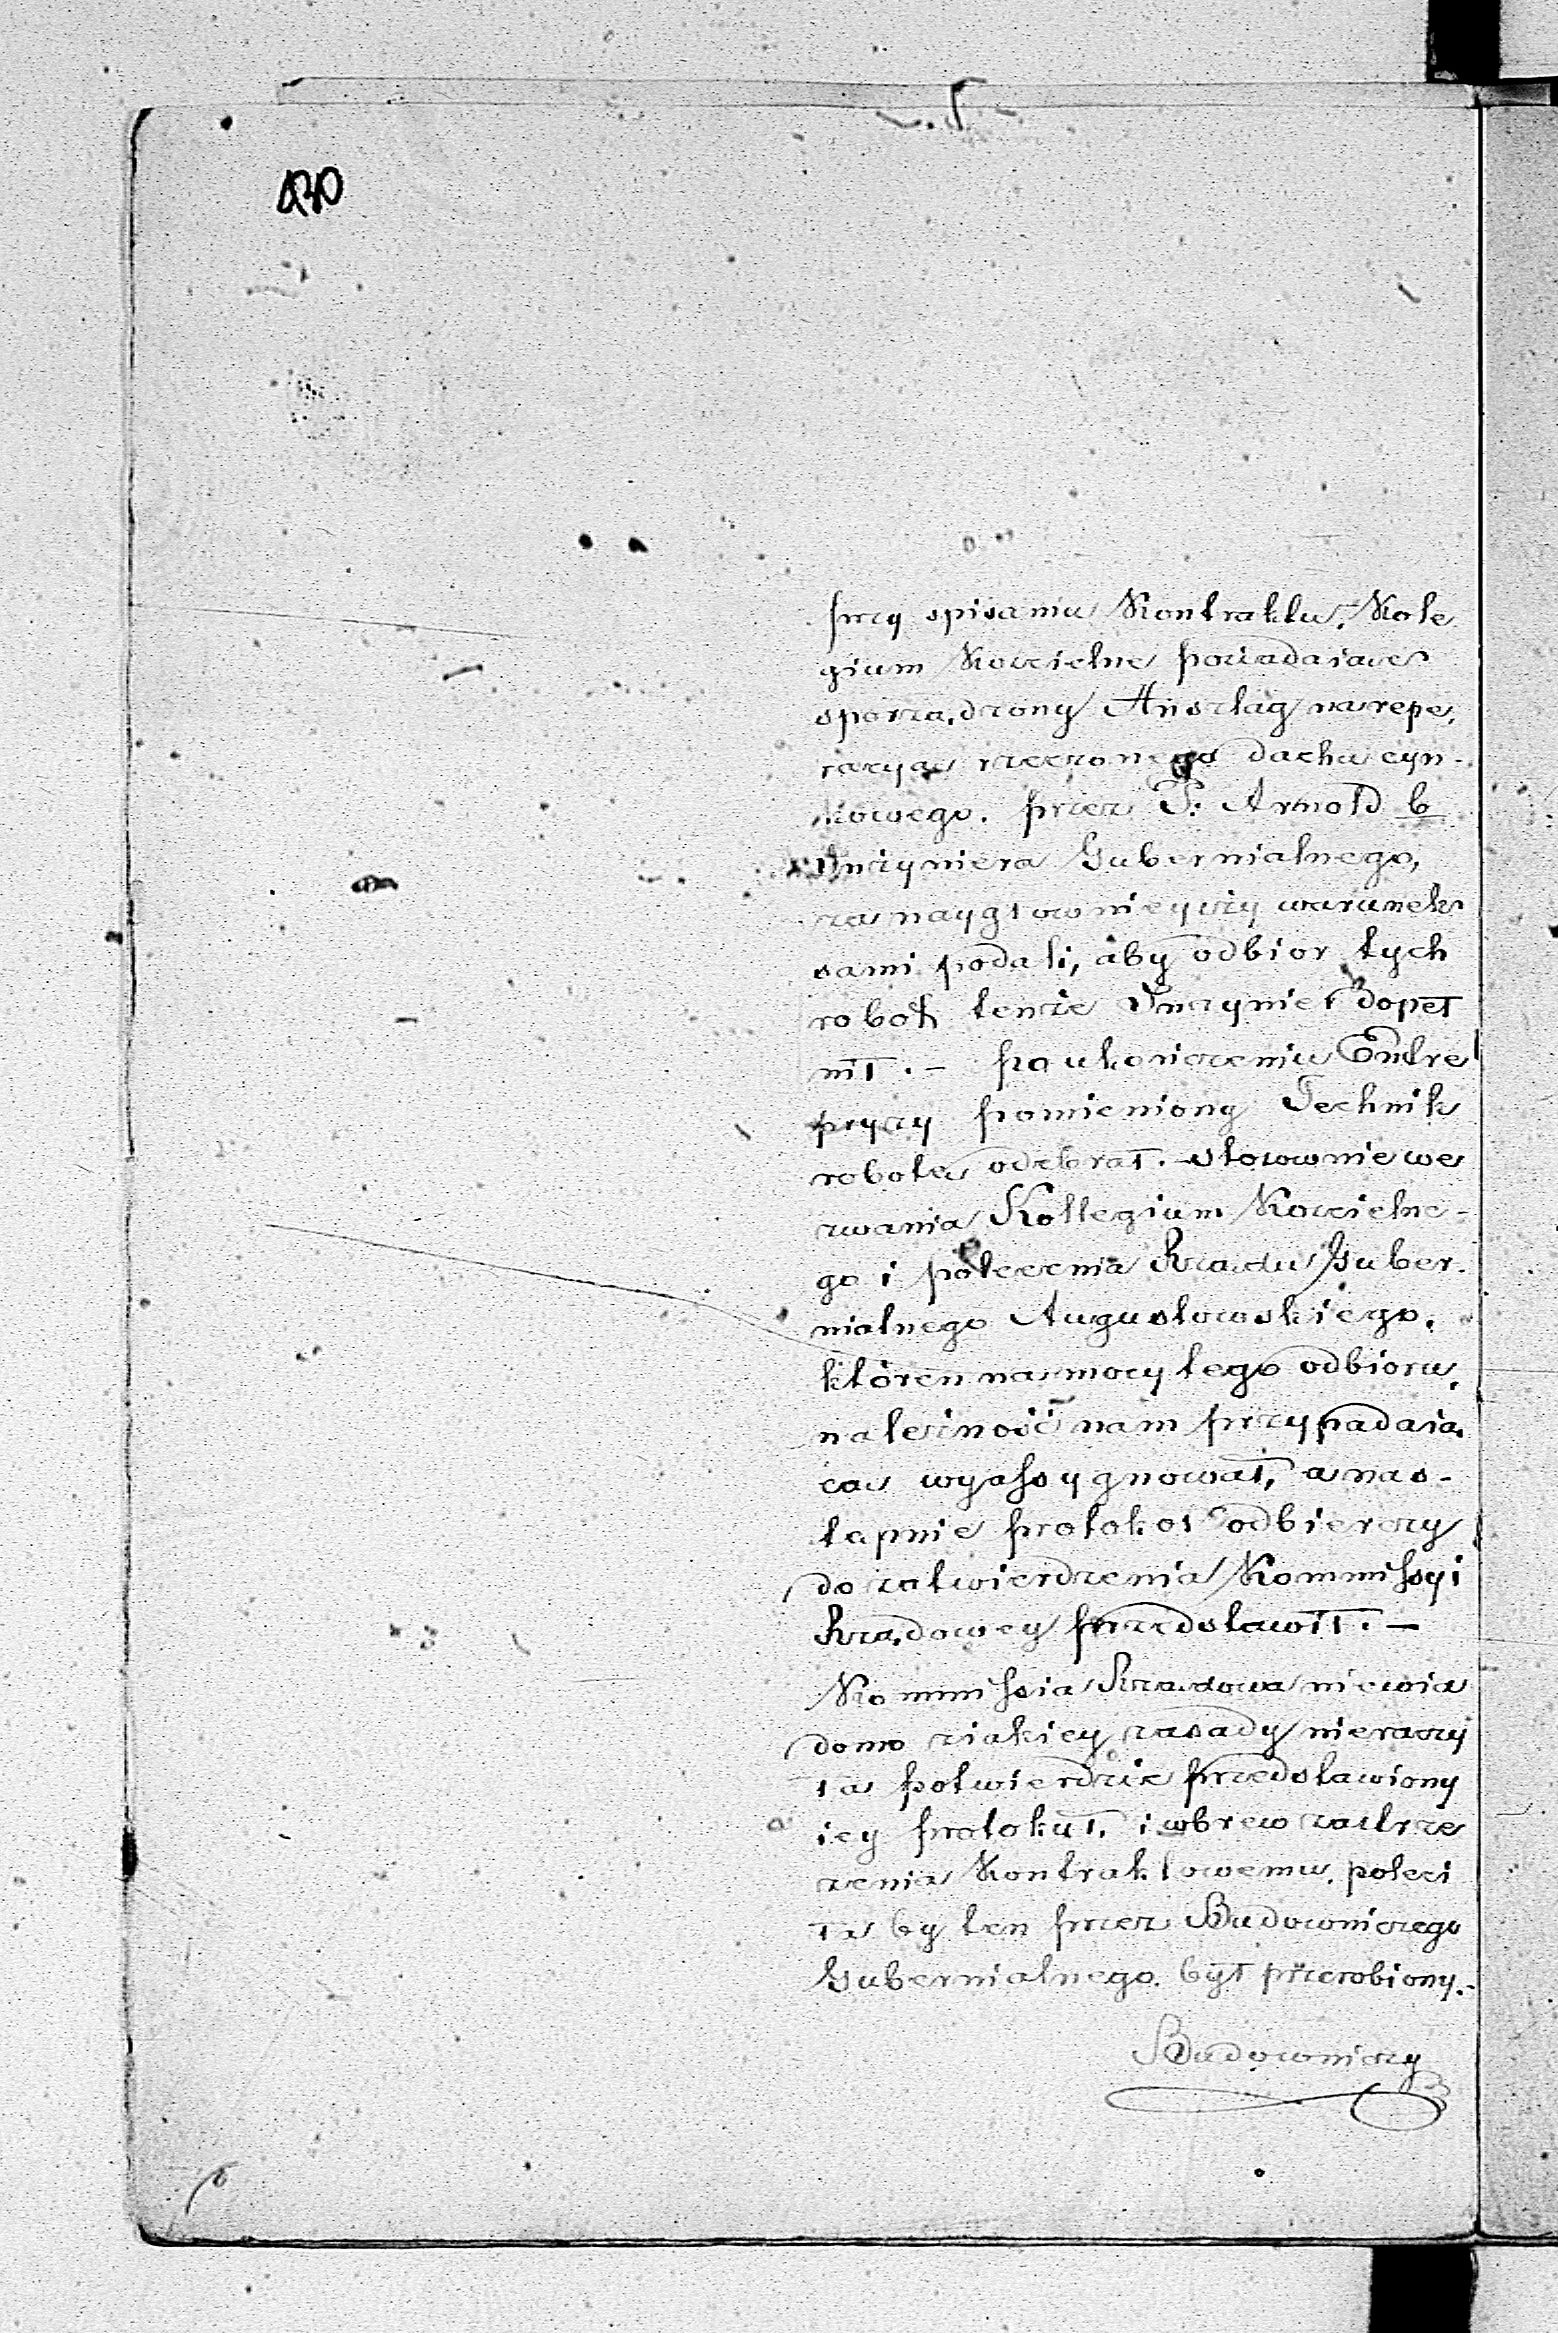 430
przy spisaniu Kontraktu, Kole
gium Kościelne posiadaiące
sporządzony Anszlag na repe,
racyą rzeczonego dachu cyn-
kowego. przez P: Arnold b
Inżyniera Gubernialnego,
za naygłownieyszy warunek
sami podali, aby odbior tych
robot tenże Inżynier dopeł
nił. – po ukończeniu Entre
pryzy pomieniony Technik
robotę odebrał. stosownie we
zwania Kollegium Kościelne-
go i polecenia Rządu Guber.
nialnego Augustowskiego.
któren na mocy tego odbioru,
należność nam przypadaią,
cą wyassygnował, a nas-
tępnie protokoł odbierczy
do zatwierdzenia Kommissyi
Rządowey przedstawił. –
Kommissia Rządowa niewia
domo z iakiey zasady nieraczy
ła potwierdzić przedstawiony
iey protokuł, i wbrew zastrze
żenia Kontraktowemu, poleci
ła by ten przez Budowniczego
Gubernialnego. był przerobiony.-
Budowniczy